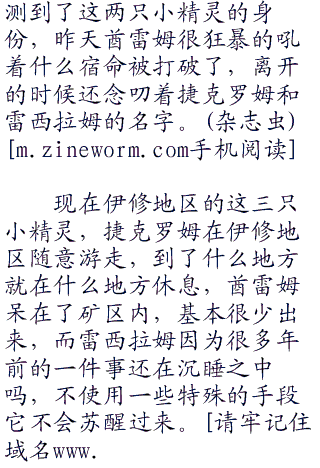 测到了这两只小精灵的身
份，昨天酋雷姆很狂暴的吼
着什么宿命被打破了，离开
的时候还念叨着捷克罗姆和
雷西拉姆的名字。(杂志虫)
[m.zineworm.com手机阅读]
现在伊修地区的这三只
小精灵，捷克罗姆在伊修地
区随意游走，到了什么地方
就在什么地方休息，酋雷姆
呆在了矿区内，基本很少出
来，而雷西拉姆因为很多年
前的一件事还在沉睡之中
吗，不使用一些特殊的手段
它不会苏醒过来。[请牢记住
域名www.